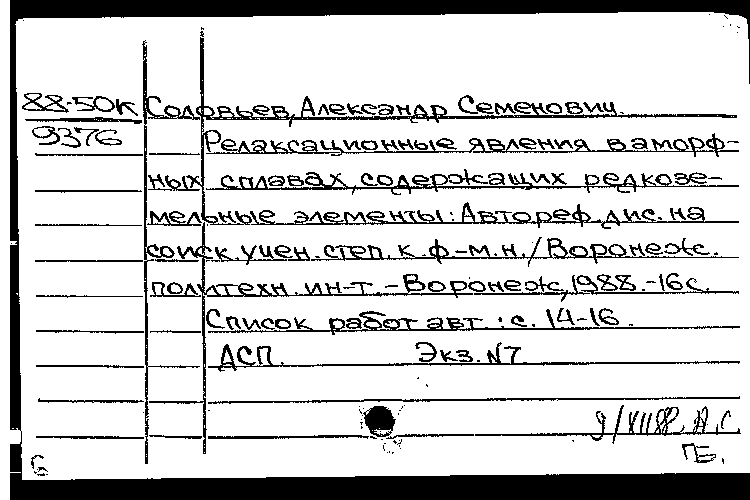 88-50к Соловьев, Александр Семенович.
9376 Релаксационные явления в аморф-
ных сплавах, содержащих редкозе-
мельные элементы: Автореф. дис. на
соиск. учен. степ. к. ф-м.н. / Воронеж.
политехн. ин-т. - Воронеж, 1988. - 16с.
Список работ авт.: с. 14-16.
АСП. Экз. N7
9/XII88 А.С.
ПБ.